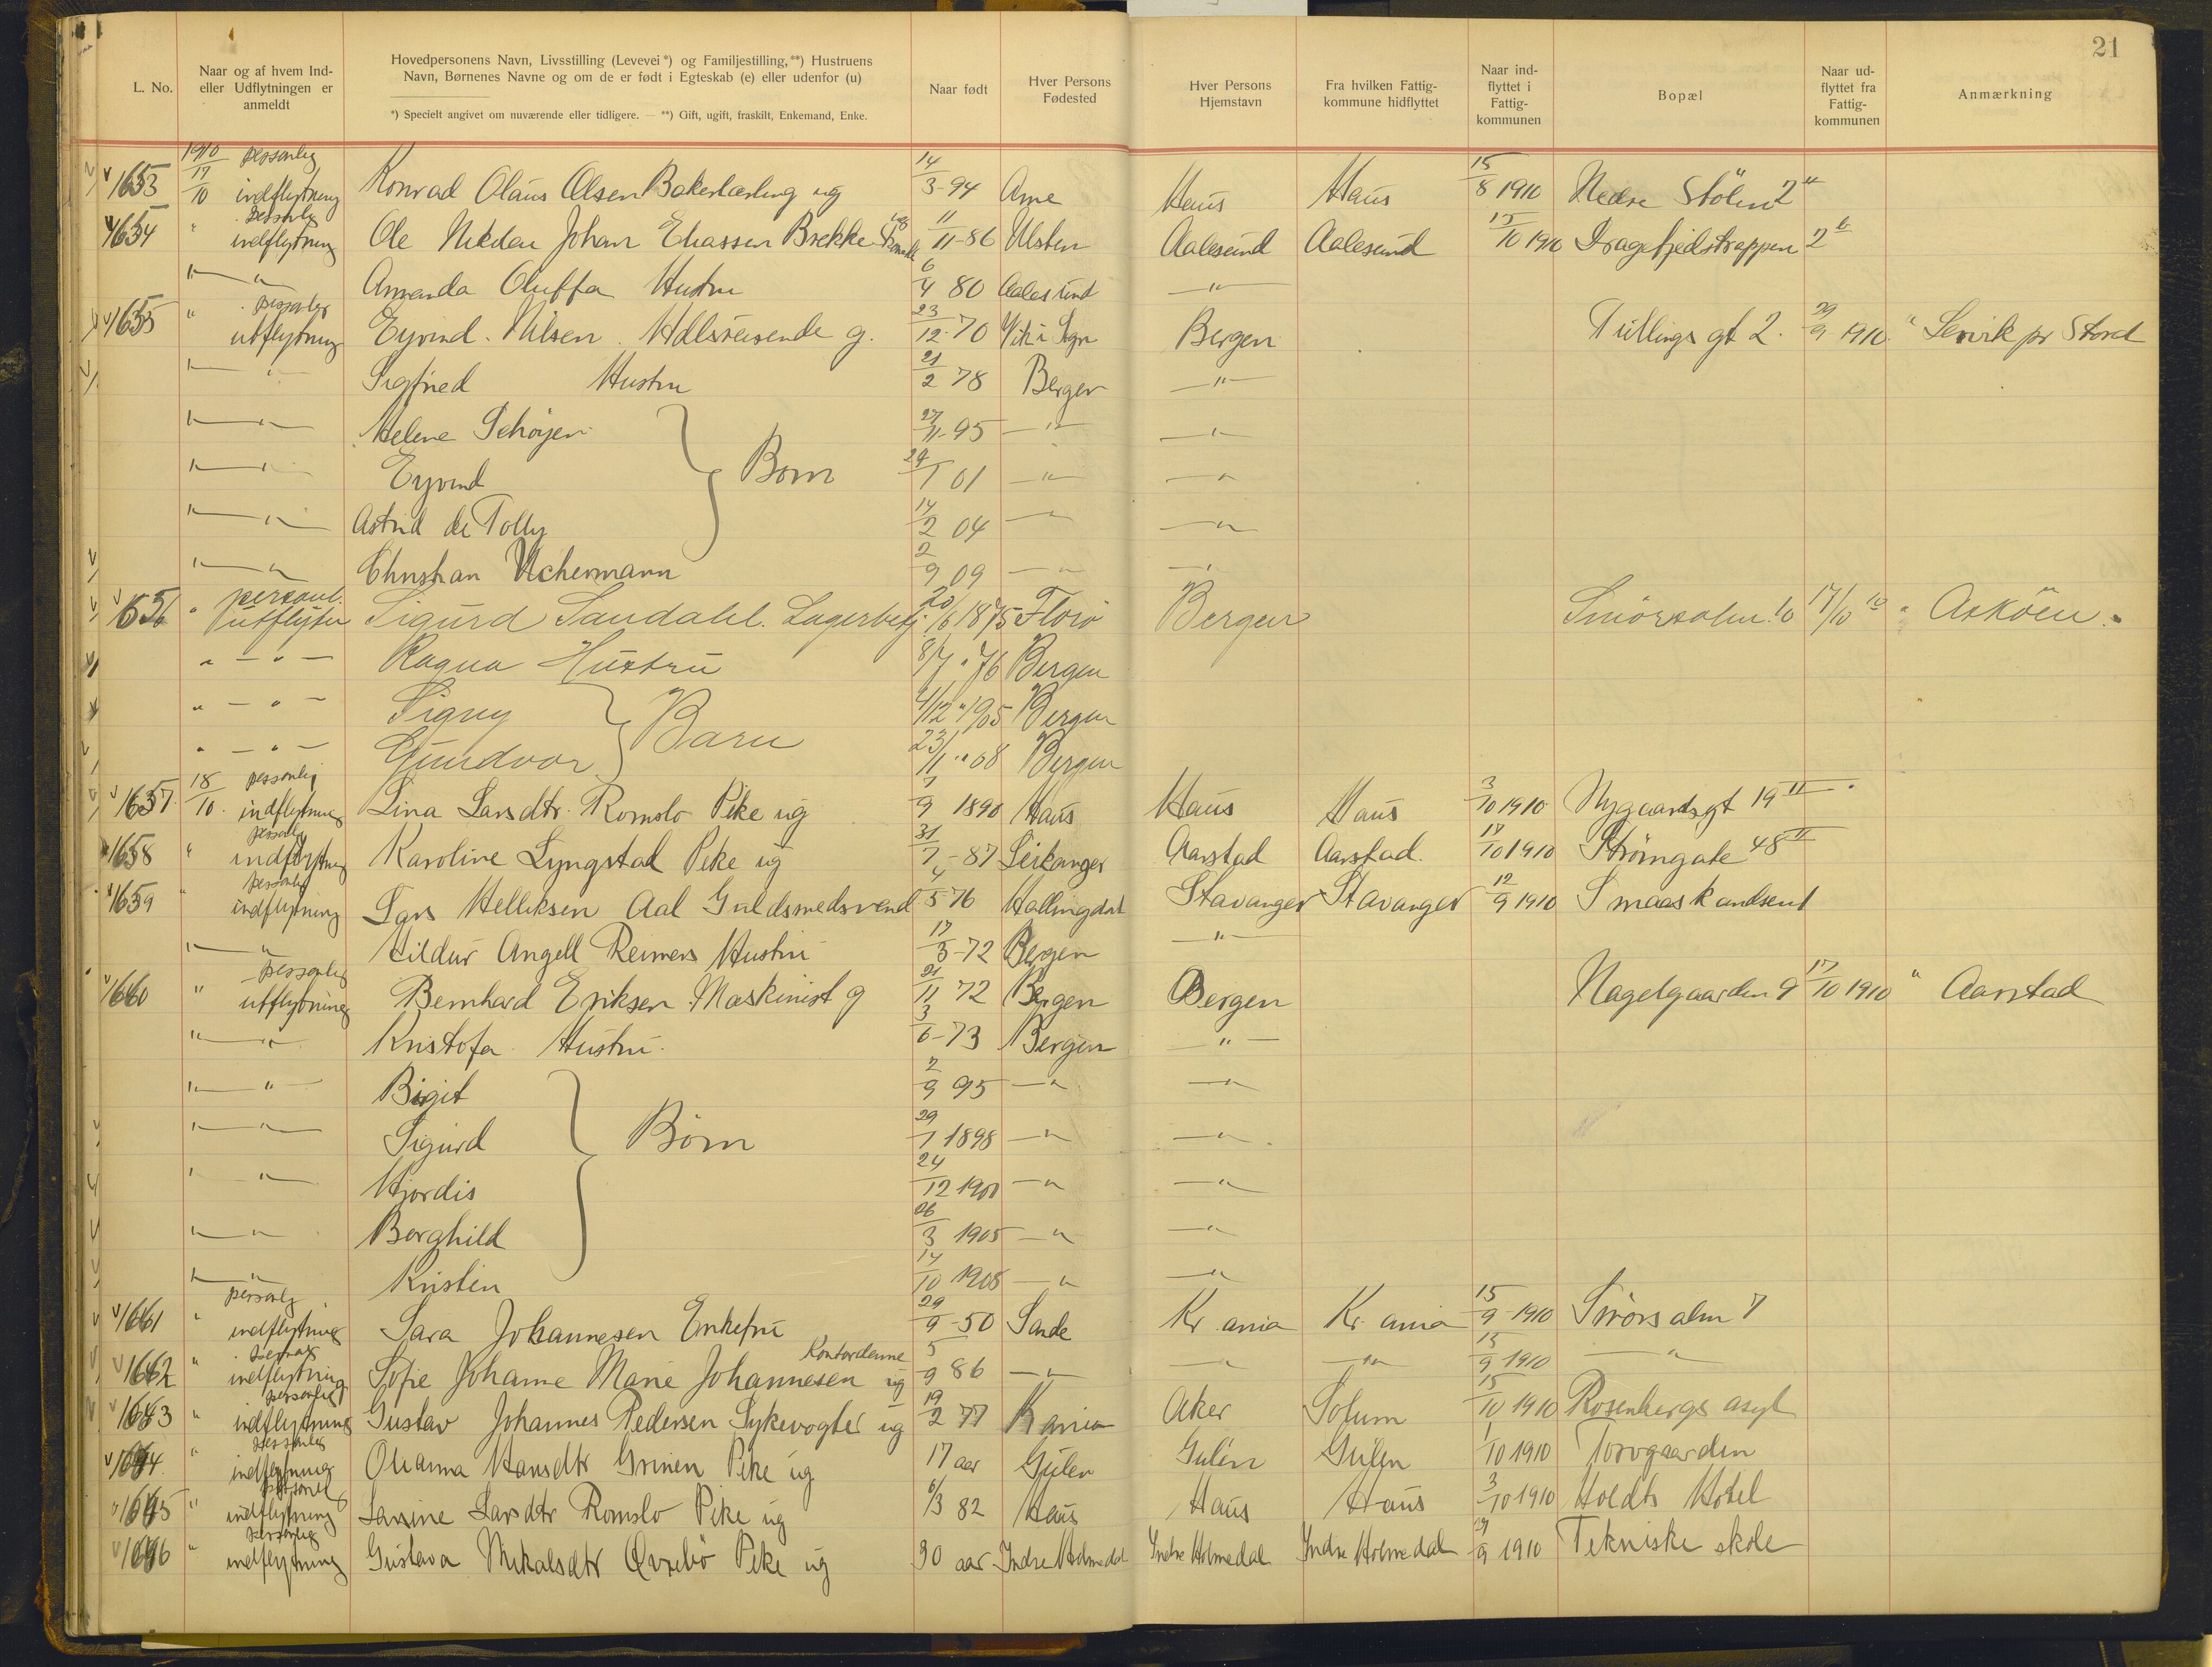 21
L. No.
Naar og af hvem Ind- eller Udflytningen er anmeldt
Hovedpersonens Navn, Livsstilling (Levevei*) og Familjestilling,**) Hustruens Navn, Børnenes Navne og om de er født i Egteskab (e) eller udenfor (u)
*) Specielt angivet om nuværende eller tidligere. — **) Gift, ugift, fraskilt, Enkemand, Enke.
Naar født
Hver Persons Fødested
Hver Persons Hjemstavn
Fra hvilken Fattig- kommune hidflyttet
Naar ind- flyttet i Fattig- kommunen
Bopæl
Naar ud- flyttet fra Fattig- kommunen
Anmærkning
1653 1910 17/10 personlig indflytning Konrad Olaus Olsen Bakerlærling ug 14/3-94 Arne Haus Haus 15/8 1910 Nedre Stölen 2
1654 " personlig indflytning Ole Johan Eliassen Brekke 11/11-86 Ulsten Aalesund Aalesund 15/10 1910 Dragefjeldstrappen 2
" Amanda Oluffa Hustru 6/4 80 Aalesund "
1655 " personlig utflytning Eyvind Nilsen Hdlsreisende g. 23/12-70 Vik i Sogn Bergen Tullings gt 2. 29/9 1910 " Lervik pr Stord
" Sigfried Hustru 21/2 78 Bergen "
" Helene Schöyen 27/11-95 " "
" Eyvind Börn 24/1 01 " "
" Astrid de Tolly 14/2 04 " "
" Christian Uchermann 2/9 09 " "
1656 " personl. utflytn Sigurd Sandahl. Lagerbetj. 20/6 1875 Florö Bergen Smörsalm. 10 17/10 10 " Asköen.
" - " - Ragna Hustru 8/7 " 76 Bergen
" - " - Signy 4/12 " 1905 Bergen
" - " - Gundvor Barn 23/11 " 08 Bergen
1657 18/10 personlig indflytning Lina Larsdtr. Romslo Pike ug 7/9 1890 Haus Haus Haus 3/10 1910 Nygaardsgt 19 II
1658 " personlig indflytning Karoline Lyngstad Pike ug 31/7-87 Leikanger Aarstad Aarstad. 17/10 1910 Strömgate 48 II
1659 " personlig indflytning Lars Helliksen Aal Guldsmedsvend 4/5 76 Hallingdal Stavanger Stavanger 12/9 1910
" Hildur Angell Reimers Hustru 17/3-72 Bergen "
1660 " personlig utflytning Bernhard Eriksen Maskinist g 21/11 72 Bergen Bergen Nagelgaarden 9 17/10 1910 " Aarstad
" Kristofa Hustru. 3/6-73 Bergen "
" Birgit 2/9 95 " "
" Sigurd Börn 29/1 1898 " "
" Hjordis 24/12 1900 " "
" Borghild 26/3 1905 " "
" Kristen 14/10 1908 " "
1661 " personlig indflytning Sara Johannesen Enkefru 29/9-50 Sande Kr. ania Kr. ania 15/9-1910 Smörsalm 7
1662 " personlig indflytning Sofie Johanne Marie Johannesen Kontordame ug 5/9 86 " " " 15/9 1910 "
1663 " personlig indflytning Gustav Johannes Pedersen Sykevogter ug 19/2 77 Kr ania Aker Solum 15/10 1910 Rosenbergs asyl
1664 " personlig indflytning Olianna Hansdtr Grinen Pike ug 17 aar Gulen Gulen Gulen 1/10 1910 Torvgaarden
1665 " personlig indflytning Larsine Larsdtr Romslo Pike ug 6/3 82 Haus Haus Haus 3/10 1910 Holdts Hotel
1666 " personlig indflytning Gustava Mikalsdtr Øvrebö Pike ug 30 aar Indre Holmedal Indre Holmedal Indre Holmedal 29/9 1910 Tekniske skole